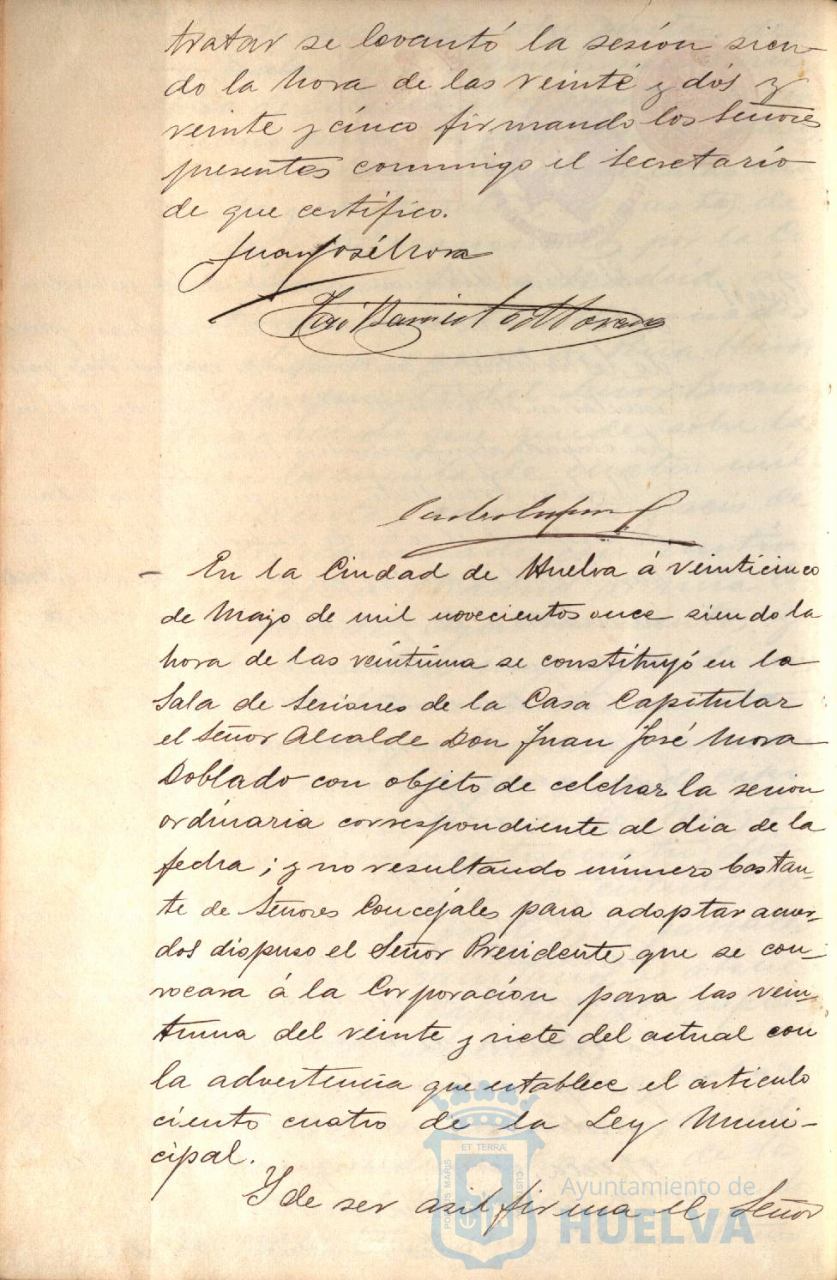 tratar se levantó la sesión sien-
do la hora de las veinte y dós y
veinte y cinco firmando los Señores
presentes conmigo el Secretario
de que certifico.
Juan José Mora
En la Ciudad de Huelva á veinticinco
de Mayo de mil novecientos once siendo la
hora de las veintiuna se constituyó en la
Sala de Sesiones de la Casa Capitular
el Señor Alcalde Don Juan José Mora
Doblado con objeto de celebrar la sesion
ordinaria correspondiente al dia de la
fecha; y no resultando número bastan-
te de Señores Concejales para adoptar acuer-
dos dispuso el Señor Presidente que se con-
vocara á la Corporación para las vein-
tiuna del veinte y siete del actual con
la advertencia que establece el articulo
ciento cuatro de la Ley Muni-
cipal.
Y de ser asi firma el Señor
ET TERRÆ
PORTUS MARIS
CUSTODIA
Ayuntamiento de
HUELVA